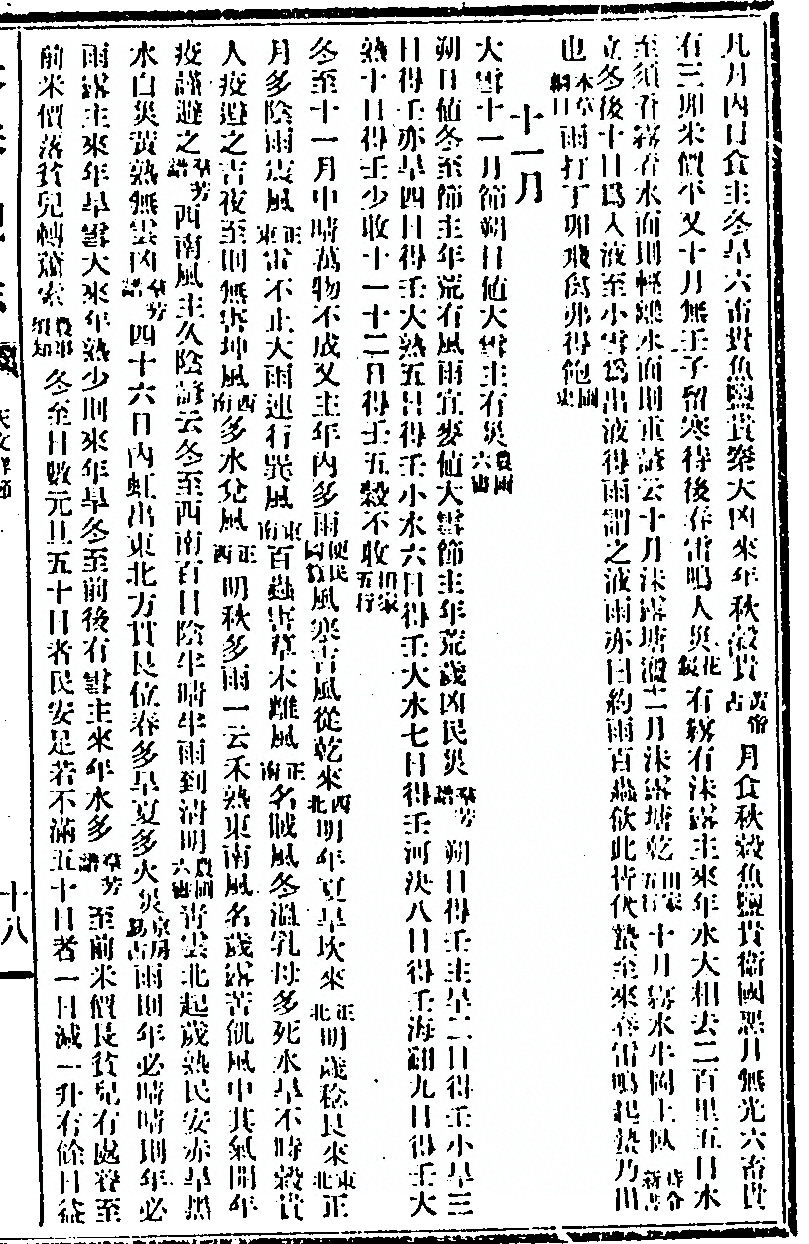 凡月內日食主冬旱六畜貴魚鹽貴米大凶來年秋穀貴黃帝占月食秋穀魚鹽貴衛國惡月無光六畜貴
有三卯米價平又十月無壬子留寒待後春雷鳴人災花鏡有霧有沫露主來年水大相去二百里五日水
至須看霧着水面則輕離水面則重諺云十月沫露塘瀊十二月沫露塘乾田家五行十月霧水牛岡上臥時令新書
立冬後十日爲入液至小雪爲出液得雨謂之液雨亦曰約雨百蟲飲此皆伏蟄至來春雷鳴起蟄乃出
也本草綱目雨打丁卯飛禽弗得飽國史
十一月
大雪十一月節朔日值大雪主有災農圃六書
朔日值冬至節主年荒有風雨宜麥值大雪節主年荒歲凶民災羣芳譜朔日得壬主旱二日得壬小旱三
日得壬亦旱四日得壬大熟五日得壬小水六日得壬大水七日得壬河決八日得壬海翻九日得壬大
熟十日得壬少收十一十二日得壬五穀不收田家五行
冬至十一月中晴萬物不成又主年內多雨便民圖纂風寒吉風從乾來西北明年夏旱坎來正北明歲稔艮來東北正
月多陰雨震風正東雷不止大雨連行巽風東南百蟲害草木離風正南名賊風冬溫乳母多死水旱不時穀貴
人疫避之吉夜至則無害坤風西南多水兌風正西明秋多雨一云禾熟東南風名歲露苦飢風中其氣開年
疫謹避之羣芳譜西南風主久陰諺云冬至西南百日陰半晴半雨到清明農圃六書青雲北起歲熟民安赤旱黑
水白災黃熟無雲凶羣芳譜四十六日內虹出東北方貫艮位春多旱夏多火災京房易占雨則年必晴晴則年必
雨露主來年旱雪大來年熟少則來年旱冬至前後有雪主來年水多羣芳譜至前米價長貧兒有處養至
前米價落貧兒轉蕭索農事須知冬至日數元旦五十日者民安足若不滿五十日者一日減一升有餘日益
十八